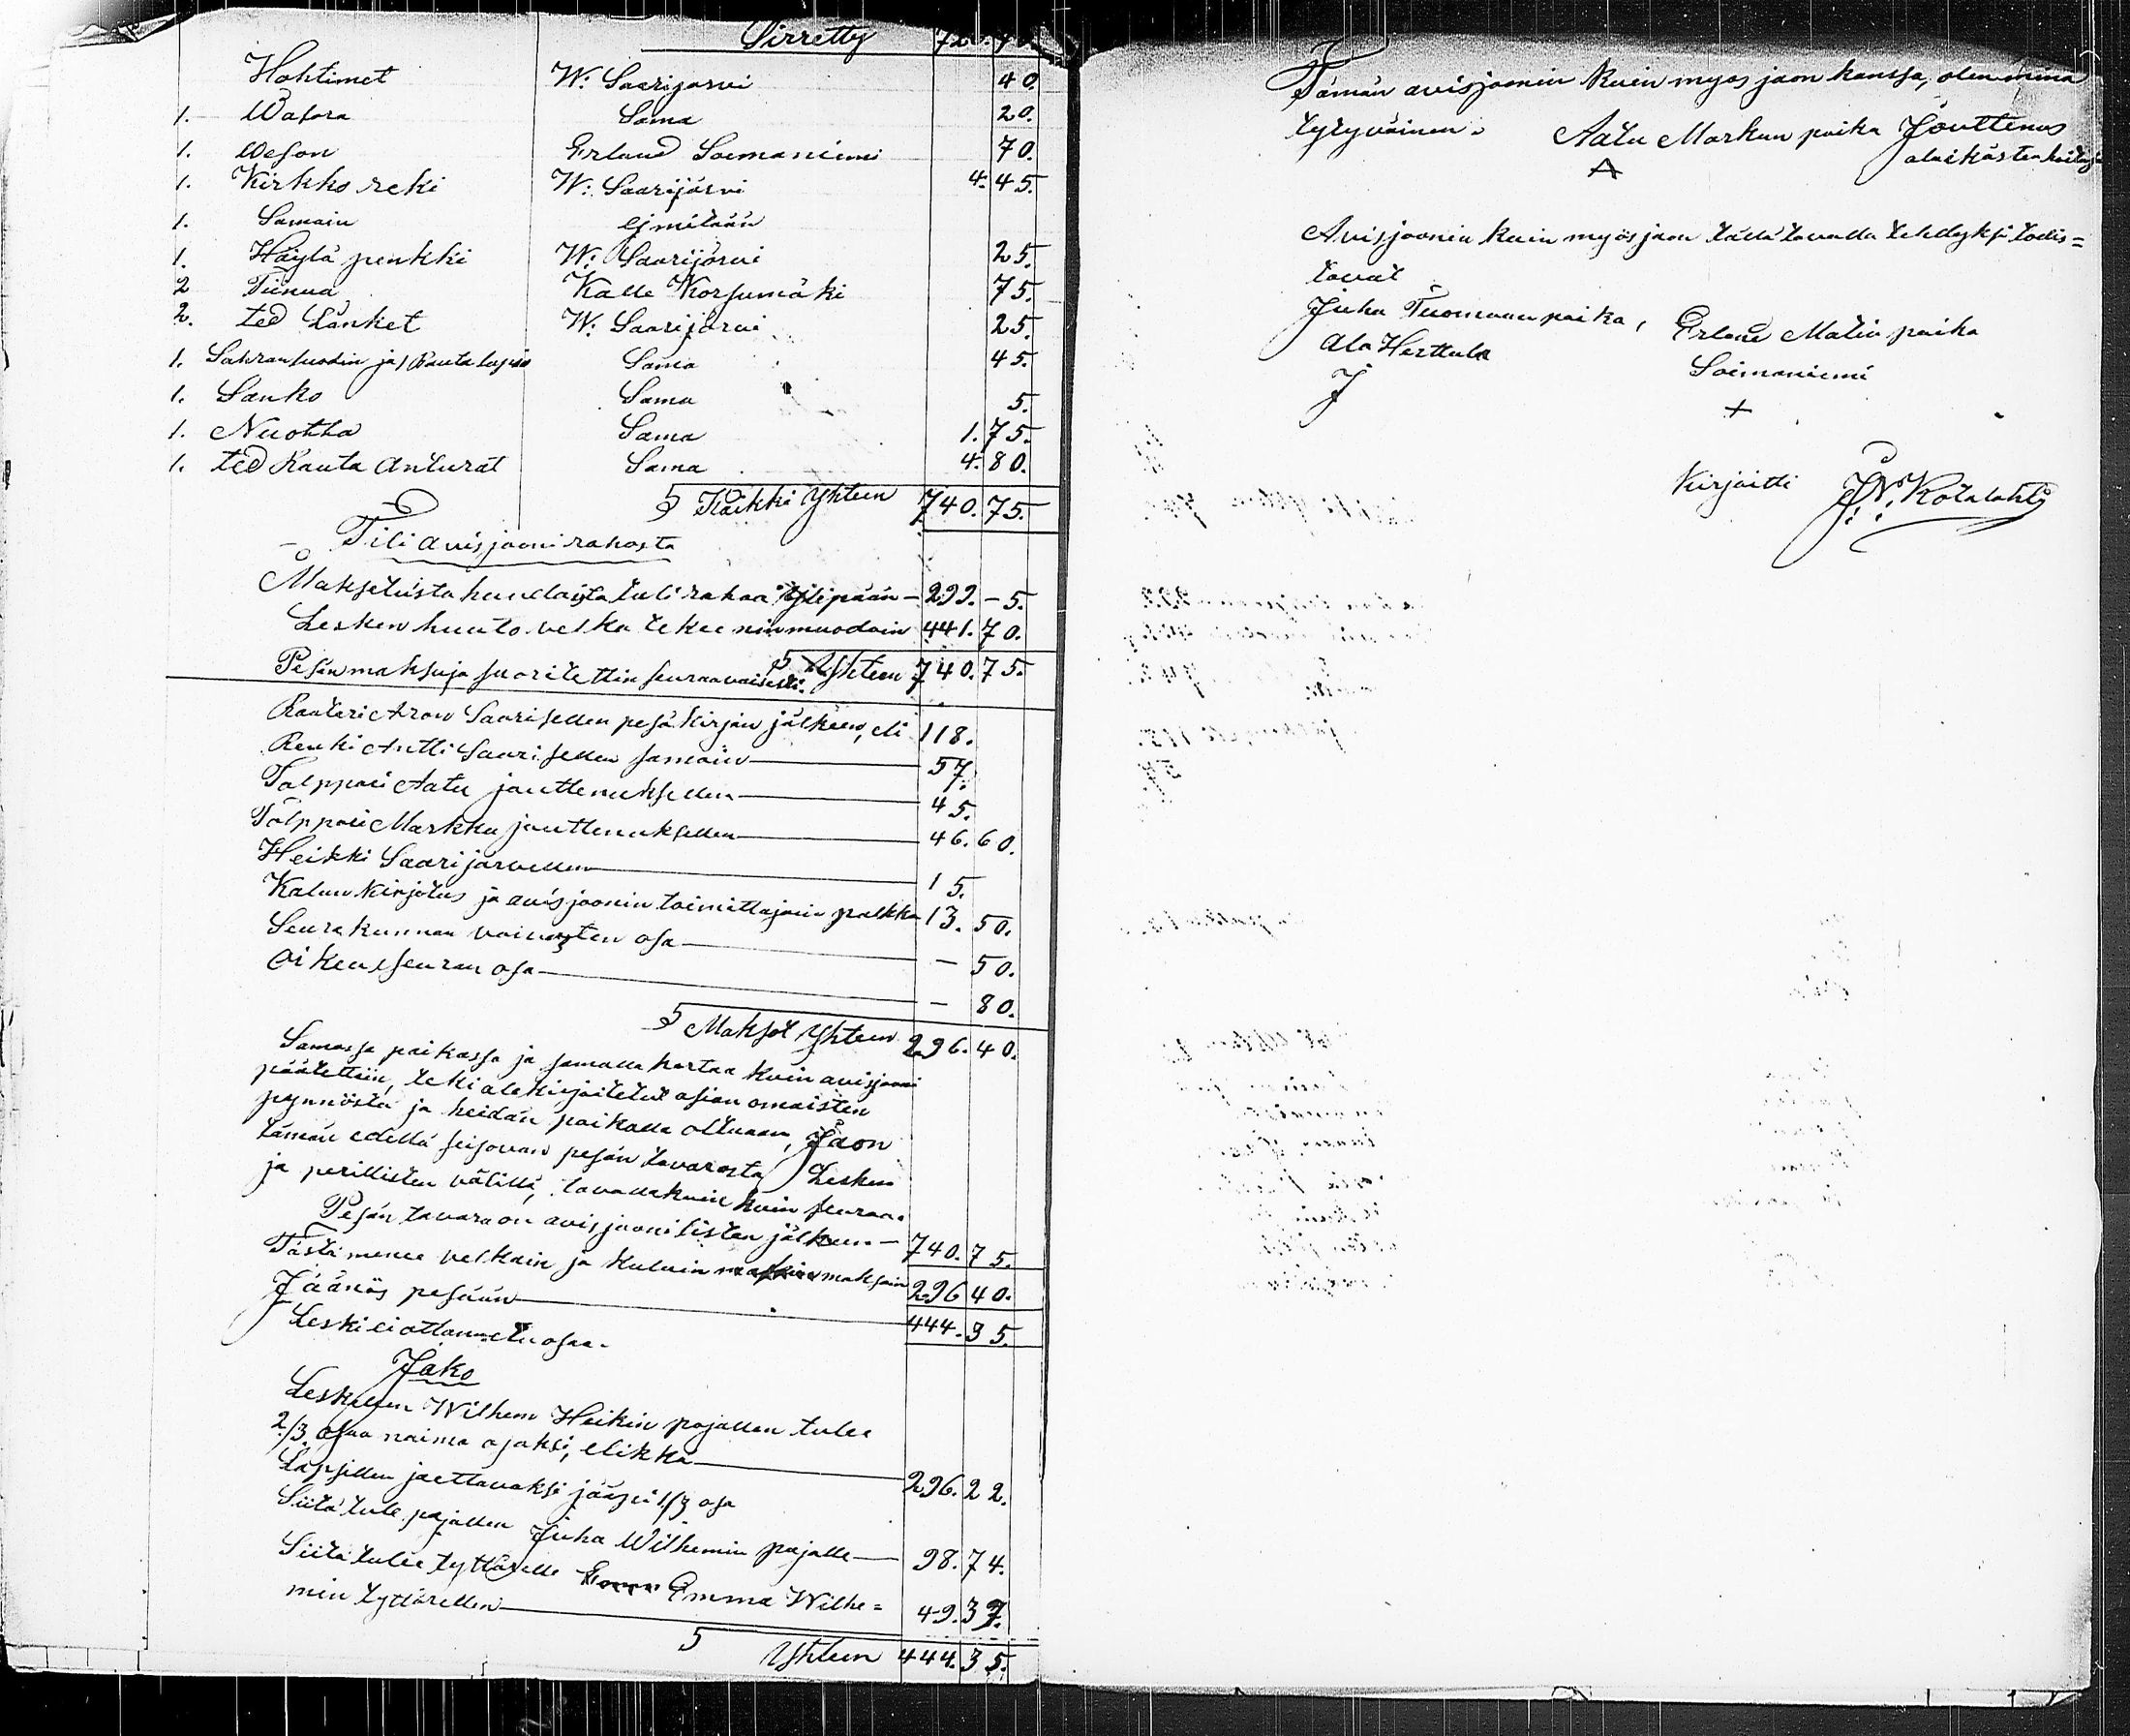 Siirretty
Hohtimet W: Saarijarvi 40.
1. Wasara Sama 20.
1. Weson Erland Soimaniemi 70.
1. Kirkko reki W: Saarijärvi 4.45.
1. Samain ej mitään
1. Häylä penkki W: Saarijärvi 25.
2 Tiinua Kalle Korsumäki 75.
2. ted Länket W: Saarijärvi 25.
1. Sahran luodin ja 1 Rauta Sama 45.
1. Sanko Sama 5.
1. Nuotta Sama 1.75.
1. ted Rauta Anturat Sama 4.80.
S Kaikki Yhteen 740.75.
Tili avisjooni rahosta
Maksetusta huudoista tuli rahaa Ylipään - 299.-5.
Lesken huuto velka tekee nin muodoin 441.70.
S Yhteen 740.75.
Pesän maksuja suoritettin seuraavaisesti.
Räätäri Aron Saarisellen pesä kirjan jälkeen, eli 118.
Renki Antti Saarisellen samoin 57.
Tälppäri Aatu jouttenuksellen 45.
Tälppäri Markku jouttenuksellen 46.60.
Heikki Saarijärvellen 15.
Kalun kirjotus ja avisjoonin toimittajain palkka 13.50.
Seurakunnan vaivasten osa - 50.
Oikeus seuran osa - 80.
S Maksot Yhteen 296.40.
Samassa paikassa ja samalla kertaa kuin avisjooni
päätettiin, teki alekirjoitetut asian omaisten
pynnöstä ja heidän paikalla olluaan, Jaon
tämän edellä seisovan pesän tavarasta Lesken
ja perillisten välillä, tavalla kuin seuraa.
Pesän tavara on avisjooni listan jälkeen - 740.75.
Tästä menee velkain ja kuluin maksuin 296 40.
Jäänös pesään 444.35.
Leski ei ottanut etu osaa.
Jako
Leskellen Wilhem Heikin pojallen tulee
2/3 osaa naima ojaksi, elikkä 296.22.
Lapsillen jaettavaksi jääpi 1/3 osa
Siitä tule pojallen Juha Wilhemin pojalle 98.74.
Siitä tulee tyttärelle Emma Wilhe=
min tyttärellen 49.37.
S Yhteen 444.35.
Tämän avisjoonin kuin myös jaon kanssa, olen minä
tytyväinen. Aatu Markun poika Jouttenus
A alaikästen
Avisjoonin kuin myös jaon tällä tavalla tehdyksi todis=
tavat
Juha Tuomaan poika, Erland Matin poika
Ala Herttula Soimaniemi
J +
Kirjoitti J.N. Kotalahti